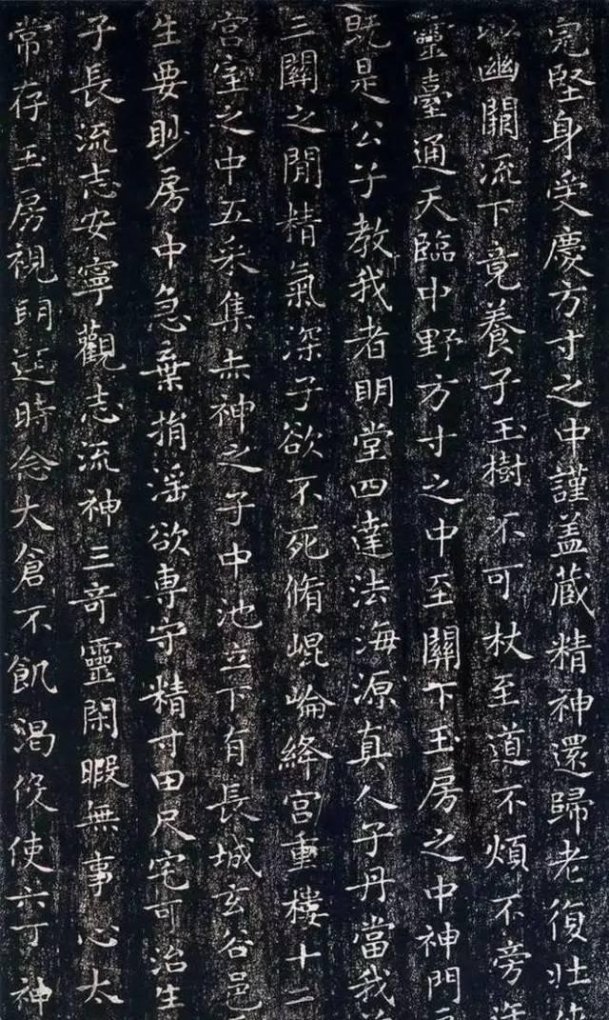 完堅身受慶方寸之中謹盖藏精神還歸老復壯
以幽闕流下竟養子玉樹不可杖至道不煩不旁
靈臺通天臨中野方寸之中至關下玉房之中神門
既是公子教我者明堂四達法海源真人子丹當我
三關之間精氣深子欲不死脩崐崘絳宮重樓十二
宮室之中五采集赤神之子中池立下有長城玄谷邑
生要眇房中急棄捐淫欲専守精寸田尺宅可治生
子長流志安寧觀志流神三奇靈閑暇無事心太
常存玉房視明達時念大倉不飢渴役使六丁神